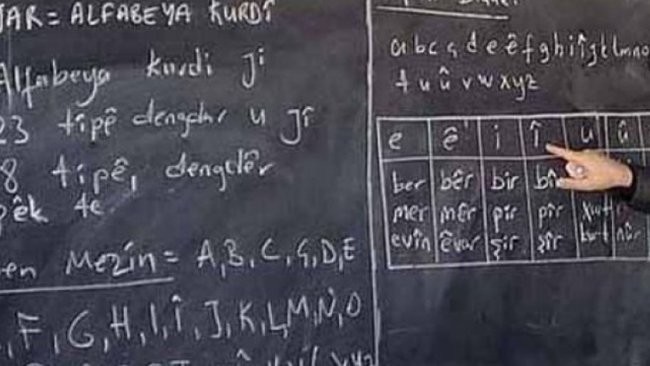 ALFABEYA KURDÎ
Alfabeya kurdi ji
23 tîpê dengdar u jî
8 tîpê, dengdêr
pêk te
Mezin = A, B, C, Ç, D, E
F, G, H, I, Î, J, K, L, M, N, O
a b c ç d e ê f g h i î j k l m n o
t u û v w x y z
e ê i Î u û
ber bêr bir bîr
mer mêr pir pîr
evîn êvar şir şîr kurt nûr